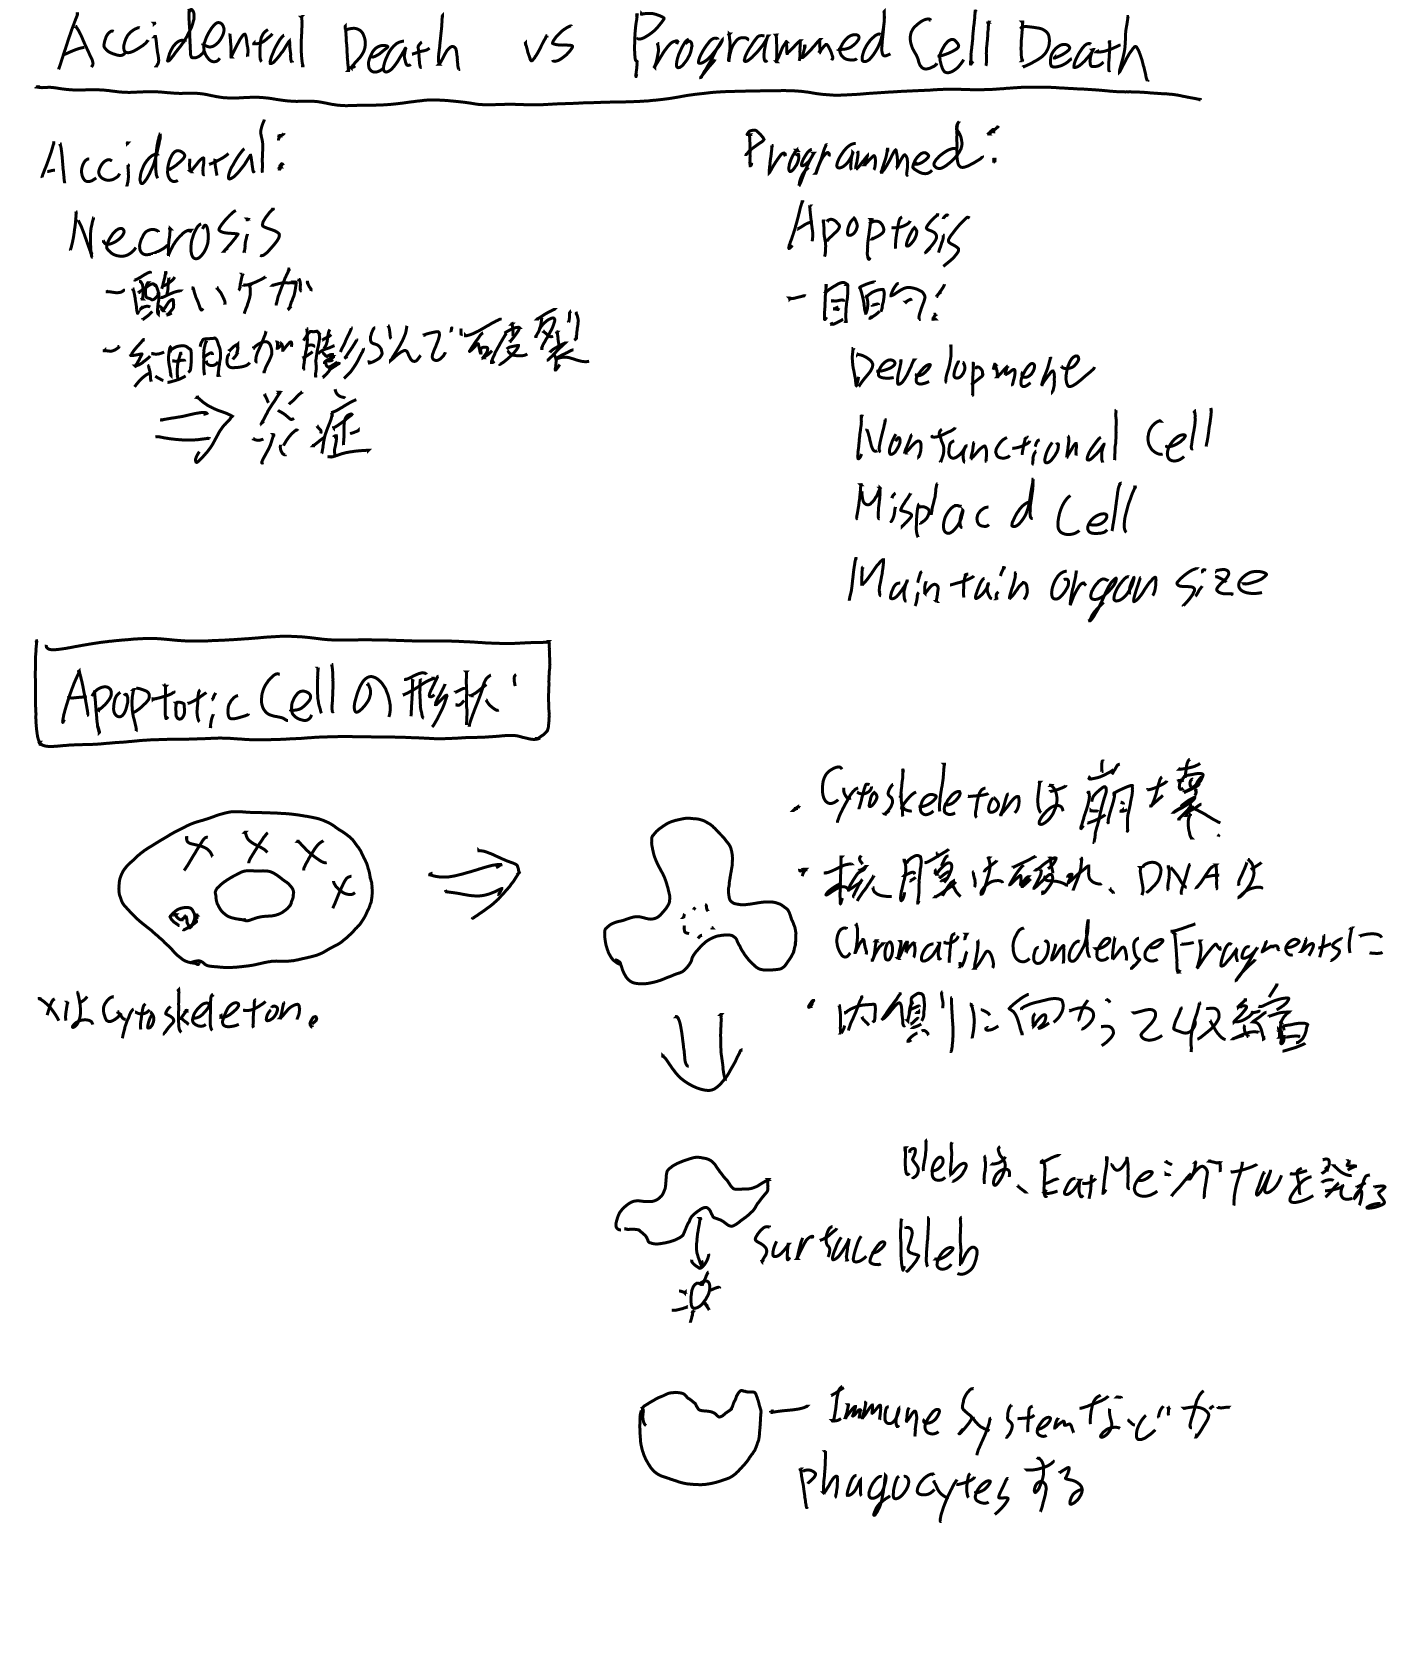 Accidental Death vs Programmed Cell Death
Accidental:
Necrosis
- 酷いケガ
- 細胞が膨らんで破裂
⇒ 炎症
Programmed:
Apoptosis
- 目的:
Development
Nonfunctional Cell
Misplacd Cell
Maintain organ size
Apoptotic Cellの形状
x x x x
xはCytoskeleton.
・Cytoskeletonは崩壊
・核膜は破れ、DNAは
Chromatin Condense Fragmentsに
・内側に向かって収縮
Blebは、EatMeシグナルを発する
Surface Bleb
Immune Systemなどが
phagocytesする